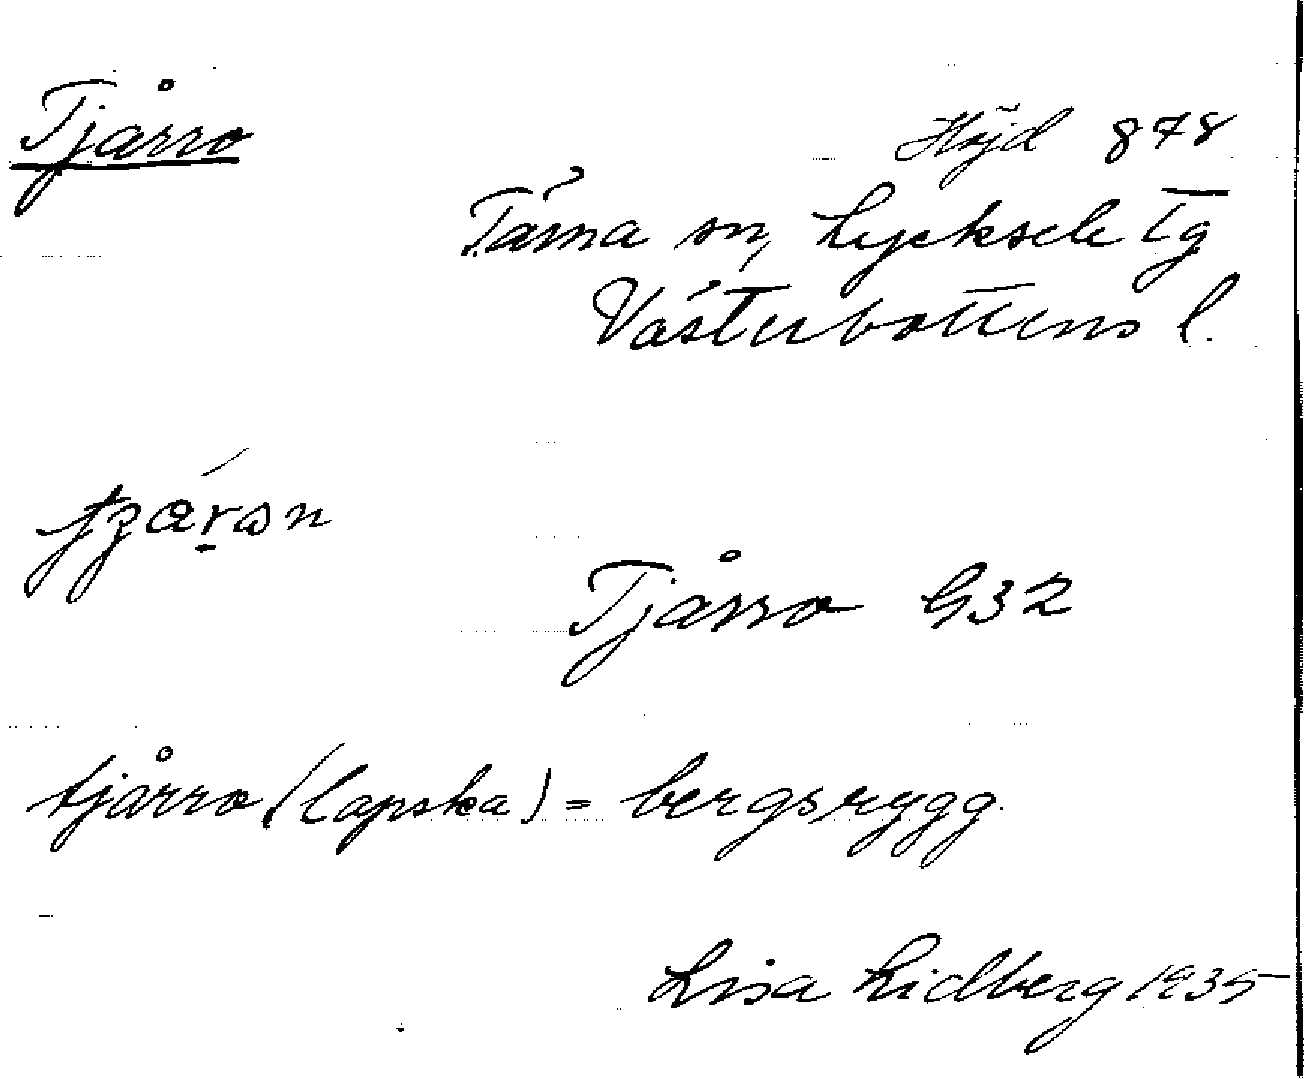 Tjårro
Höjd 878
Tärna sn, Lycksele Tg
Västerbottens l.
Tjårro G32
tjårro (lapska) = bergsrygg.
Lisa Lidberg 1935